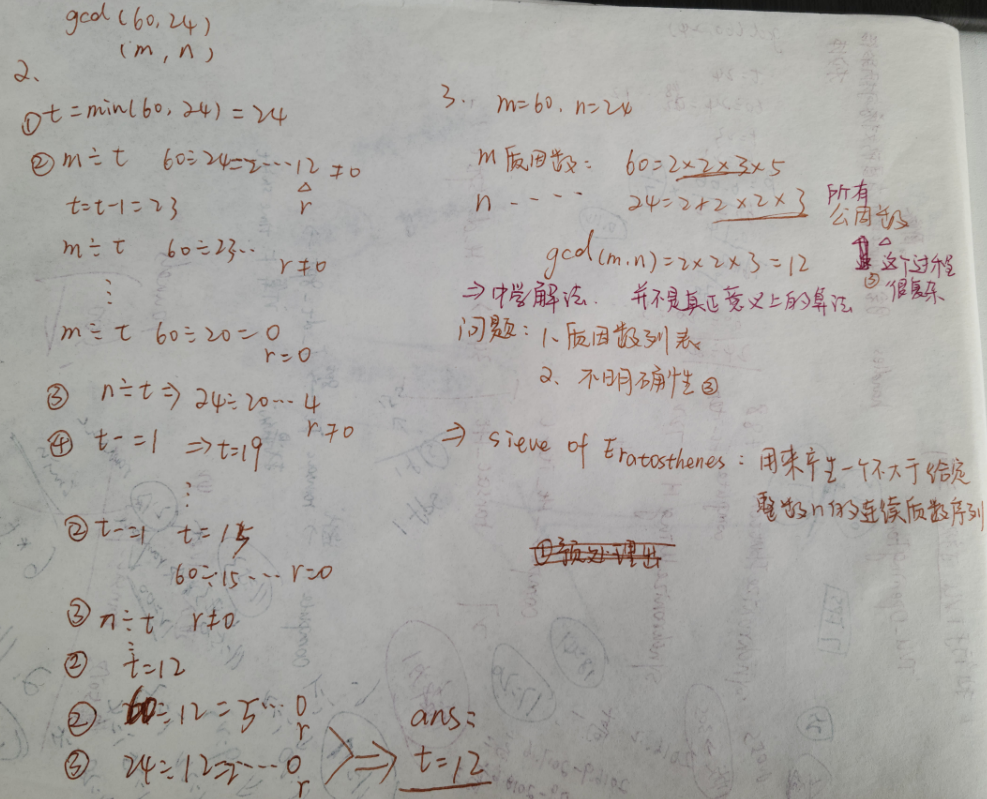 gcd(60,24)
(m, n)
2.
①t=min(60, 24)=24
②m÷t 60÷24=2…12≠0
△
t=t-1=23 r
m÷t 60÷23…
r≠0
⋮
m÷t 60÷20=0
r=0
③ n÷t⇒ 24÷20…4
r≠0
④ t-=1 ⇒t=19
⋮
②t-=1 t=15
60÷15…r=0
③n÷t r≠0
⋮
② t=12
② 60÷12=5…0
r
③ 24÷12=2…0
r
⇒ ans:
t=12
3. m=60, n=24
m质因数: 60=2×2×3×5
n ---- 24=2×2×2×3
所有
公因数
gcd(m,n)=2×2×3=12
△
③这个过程
很复杂
⇒中学解法. 并不是真正意义上的算法
问题: 1、质因数列表
2、不明确性③
⇒ sieve of Eratosthenes: 用来产生一个不大于给定
整数n的连续质数序列